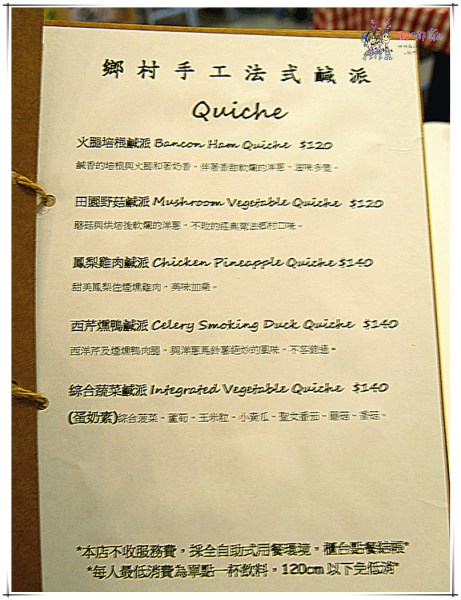 鄉村手工法式鹹派
Quiche
火腿培根鹹派 Bancon Ham Quiche $120
鹹香的培根與火腿和著奶香，伴著香甜軟爛的洋蔥，滋味多層。
田園野菇鹹派 Mushroom Vegetable Quiche $120
蘑菇與烘焙後軟爛的洋蔥，不敗的經典寫法鄉村口味。
鳳梨雞肉鹹派 Chicken Pineapple Quiche $140
甜美鳳梨佐煙燻雞肉，美味加乘。
西芹燻鴨鹹派 Celery Smoking Duck Quiche $140
西洋芹及煙燻鴨肉園，與洋蔥馬鈴薯絕妙的風味，不容錯過。
綜合蔬菜鹹派 Integrated Vegetable Quiche $140
(蛋奶素)綜合蔬菜、蘆筍、玉米粒、小黃瓜、聖女番茄、蘑菇、香菇。
*本店不收服務費，採全自助式用餐環境，櫃台點餐結帳*
*每人最低消費為單點一杯飲料，120cm以下免低消*